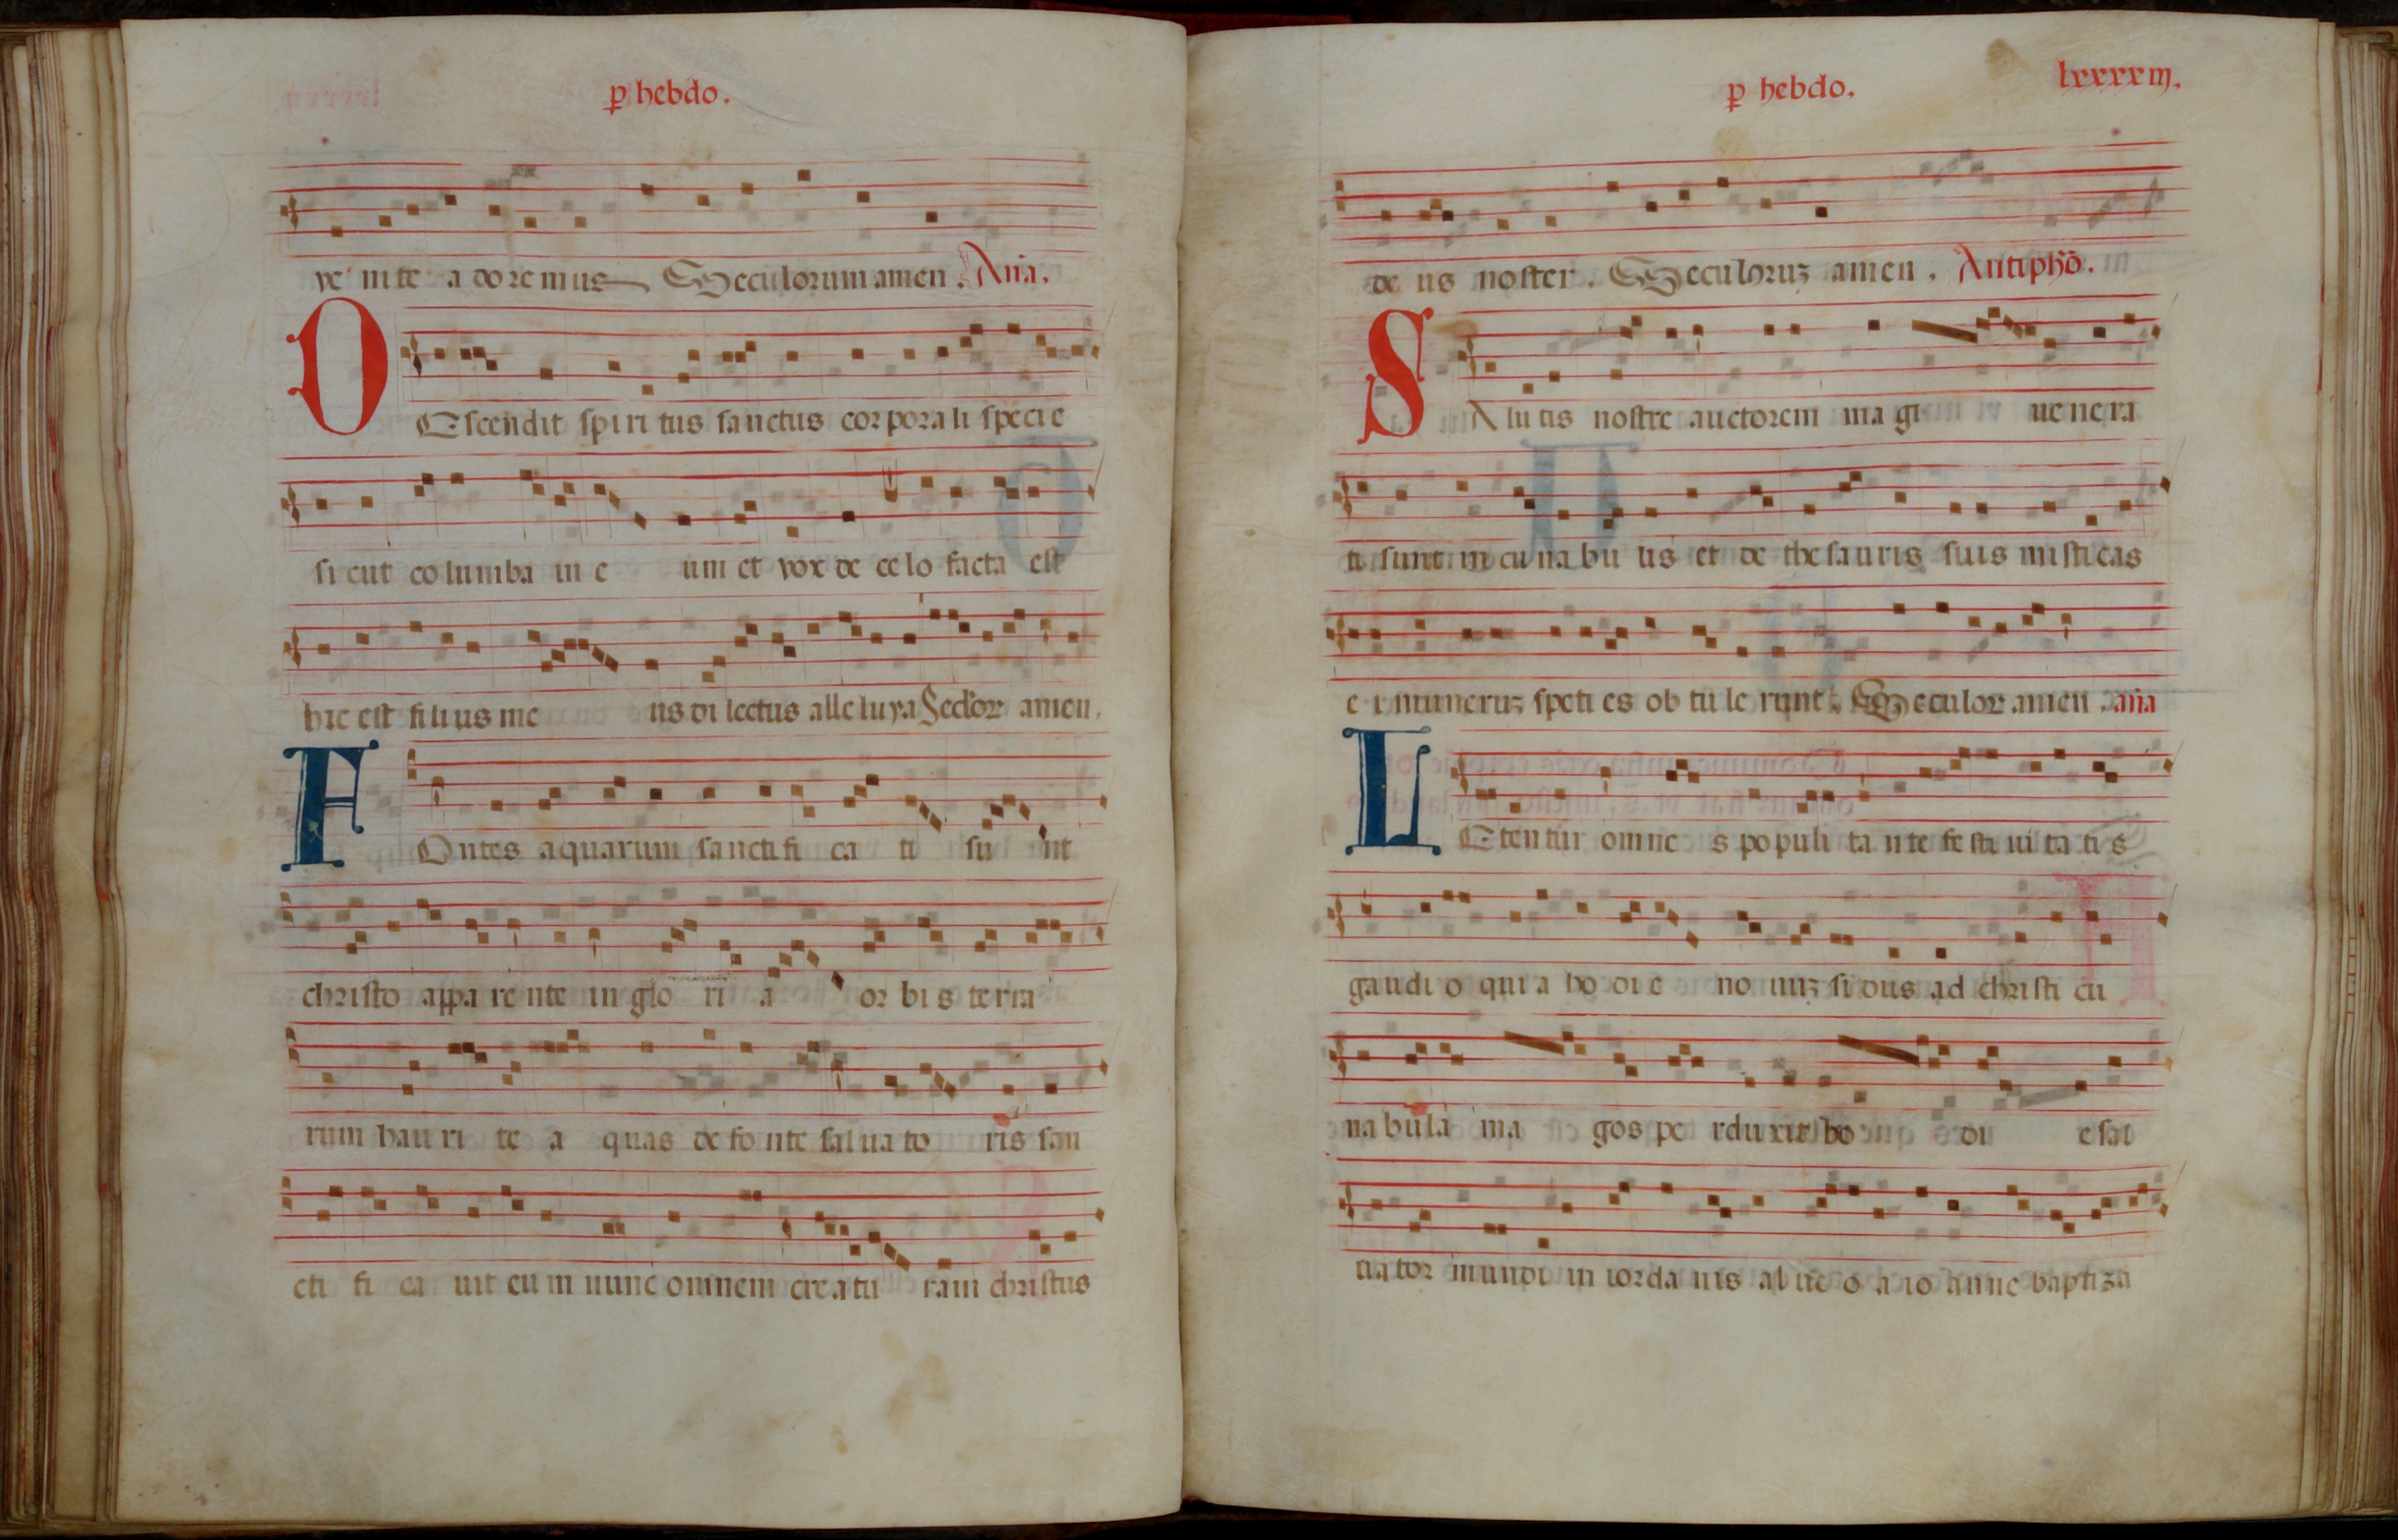 p hebdo.
ve nite a doremus Seculorum amen. Aña.
OEscendit spiri tus sanctus corporali specie
sicut columba in e um et vox de celo facta est
hic est filius me us dilectus alleluya Seclor amen.
FOntes aquarum sanctifi ca ti su nt
christo appa rente in glo ri a or bis terra
rum hauri te a quas de fonte saluato ris san
cti fi ca uit cum nunc omnem creatu ram christus
p hebdo. lxxxxiij.
de us noster. Seculoruz amen. Antipho.
SAlutis nostre auctorem magi uenera
ti sunt in cunabu lis et de thesauris suis misticas
ei muneruz speties obtulerunt. Seculor amen. aña
LEtentur omne s populi tante festiuitatis
gaudio quia hodie nouuz sidus ad christi cu
nabula ma gos perduxit ho di e sal
uator mundi in iordanis alueo a ioanne baptiza